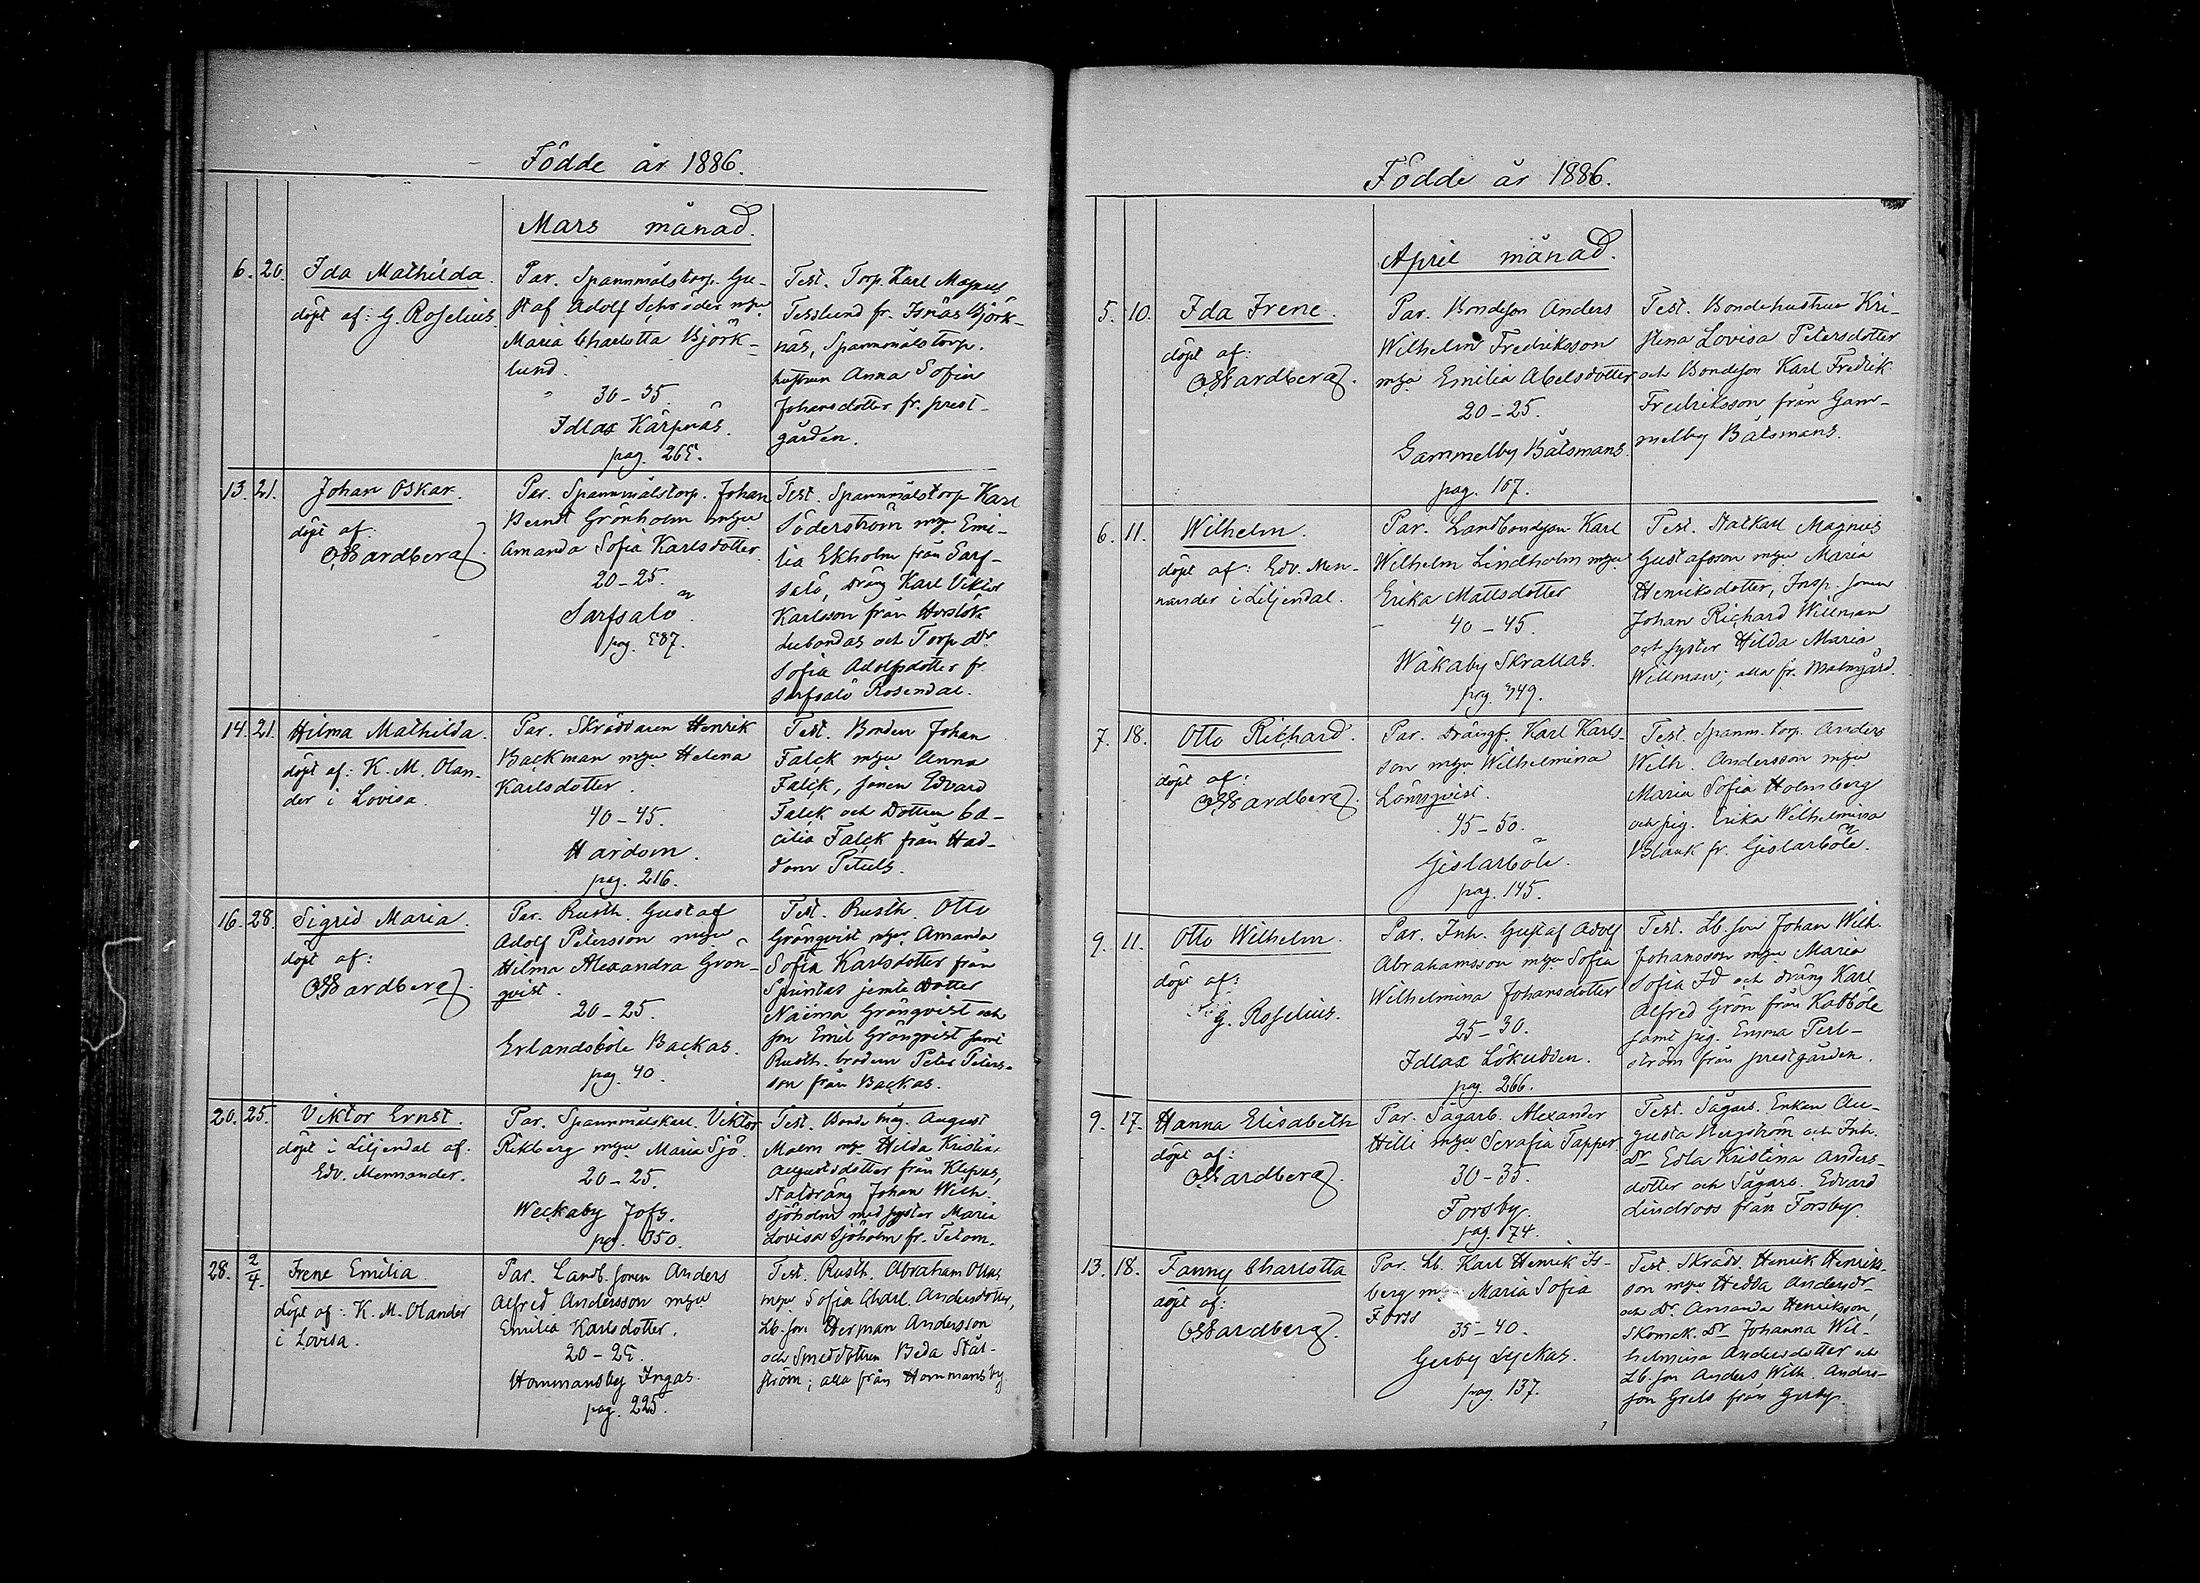 Födde år 1886.
Mars månad.
6. 20. Ida Mathilda.
döpt af: G. Roselius.
Par. Spannmålstorp. Gu-
staf Adolf Schröder mhu
Maria Charlotta Björk-
lund.
30-35.
Idlax Kärpnäs.
pag. 265.
Test. Torp. Karl Magnus
Tesslund fr. Isnäs Björk-
näs, Spannmålstorp.
hustrun Anna Sofia
Johansdotter fr. prest-
gården.
13. 21. Johan Oskar.
döpt af:
Par. Spannmålstorp. Johan
Berndt Grönholm mhu
Amanda Sofia Karlsdotter.
20-25.
Sarfsalö.
pag. 587.
Test. Spannmålstorp Karl
Söderström mhu Emi-
lia Ekholm från Sarf-
salö, dräng Karl Viktor
Karlsson från Horslök
och Torp. dr.
Sofia Adolfsdotter fr.
Sarfsalö Rosendal.
14. 21. Hilma Mathilda.
döpt af: K. M. Olan-
der i Lovisa.
Par. Skräddaren Henrik
Backman mhu Helena
Karlsdotter.
40-45.
Hardom.
pag. 216.
Test. Bonden Johan
Falck mhu Anna
Falck, sonen Edvard
Falck och dottren Cä-
cilia Falck från Har-
dom Petuls.
16. 28. Sigrid Maria.
döpt af:
Par. Rusth. Gustaf
Adolf Petersson mhu
Hilma Alexandra Grön-
qvist.
20-25.
Erlandsböle Backas.
pag. 40.
Test. Rusth. Otto
Grönqvist mhu Amanda
Sofia Karlsdotter från
jemte dotter
Naëma Grönqvist och
son Emil Grönqvist samt
Rusth. brodern Peter Peters-
son från Backas.
20. 25. Viktor Ernst.
döpt i Liljendal af:
Edv. Mennander.
Par. Spannmålskarl Viktor
Rikberg mhu Maria Sjö.
20-25.
Weckaby Jofs.
pag. 350.
Test. Bonde måg. August
Malm mhu Hilda Kristina
Augustsdotter från Klepas,
Statdräng Johan Wilh.
Sjöholm med syster Maria
Lovisa Sjöholm fr. Tetom.
28. 2/4. Irene Emilia
döpt af: K. M. Olander
i Lovisa.
Par. Landb. sonen Anders
Alfred Andersson mhu
Emilia Karlsdotter.
20-25.
Hommansby Ingas.
pag. 225.
Test. Rusth. Abraham
mhu Sofia Charl. Andersdotter,
Lb. son Herman Andersson
och Smeddottren Beda Stål-
ström; alla från Hommansby.
Födde år 1886.
April månad.
5. 10. Ida Irene.
döpt af:
Par. Bondeson Anders
Wilhelm Fredriksson
mhu Emilia Abelsdotter
20-25.
Gammelby Båtsmans.
pag. 107.
Test. Bondehustrun Kri-
stina Lovisa Petersdotter
och Bondeson Karl Fredrik
Fredriksson från Gam-
melby Båtsmans.
6. 11. Wilhelm.
döpt af: Edv. Men-
nander i Liljendal.
Par. Landbondeson Karl
Wilhelm Lindholm mhu
Erika Mattsdotter
40-45.
Wäkaby Skrallas.
pag. 349.
Test. Statkarl Magnus
Gustafsson mhu Maria
Henriksdotter, Insp. sonen
Johan Richard Willman
och syster Hilda Maria
Willman; alla fr. Malmgård.
7. 18. Otto Richard.
döpt af:
Par. drängf. Karl Karls-
son mhu Wilhelmina
Lönnqvist.
45-50.
Gislarböle.
pag. 145.
Test. Spanm. torp. Anders
Wilh. Andersson mhu
Maria Sofia Holmberg
och pig. Erika Wilhelmina
Blank fr. Gislarböle.
9. 11. Otto Wilhelm.
döpt af:
G. Roselius.
Par. Inh. Gustaf Adolf
Abrahamsson mhu Sofia
Wilhelmina Johansdotter
25-30.
Idlax Lökudden.
pag. 266.
Test. Lb. son Johan Wilh.
Johansson mhu Maria
Sofia Id och dräng Karl
Alfred Grön från Kabböle
samt pig. Emma Perl-
ström från prestgården.
9. 17. Hanna Elisabeth
döpt af:
Par. Sågarb. Alexander
Hilli mhu Serafia Tapper
30-35.
Forsby.
pag. 174.
Test. Sågarb. Enkan Au-
gusta Bergström och Inh.
dr. Edla Kristina Anders-
dotter och Sågarb. Edvard
Lindroos från Forsby.
13. 18. Fanny Charlotta
döpt af:
Par. Lb. Karl Henrik Is-
berg mhu Maria Sofia
Forss
35-40.
Gerby Lyckas.
pag. 137.
Test. Skrädd. Henrik Henriks-
son mhu Hedda Andersdr.
och dr. Amanda Henriksson,
Skomak. dr. Johanna Wil-
helmina Andersdotter och
Lb. son Anders Wilh. Anders-
son Grels från Gerby.